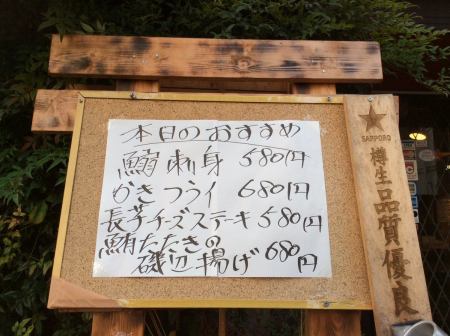 本日のおすすめ
鰯刺身 580円
かきフライ 680円
長芋チーズステーキ 580円
鮪たたきの
磯辺揚げ 680円
SAPPORO
樽生品質優良